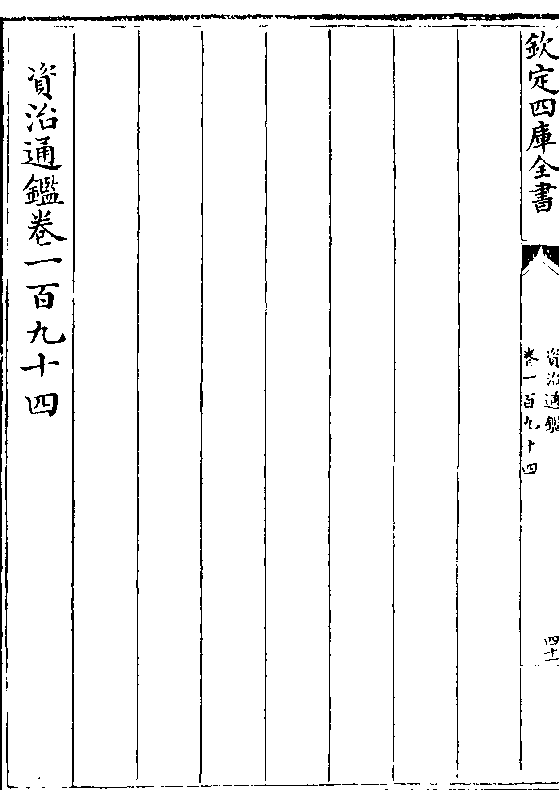 欽定四庫全書
資治通鑑
卷一百九十四
四十一
資治通鑑卷一百九十四